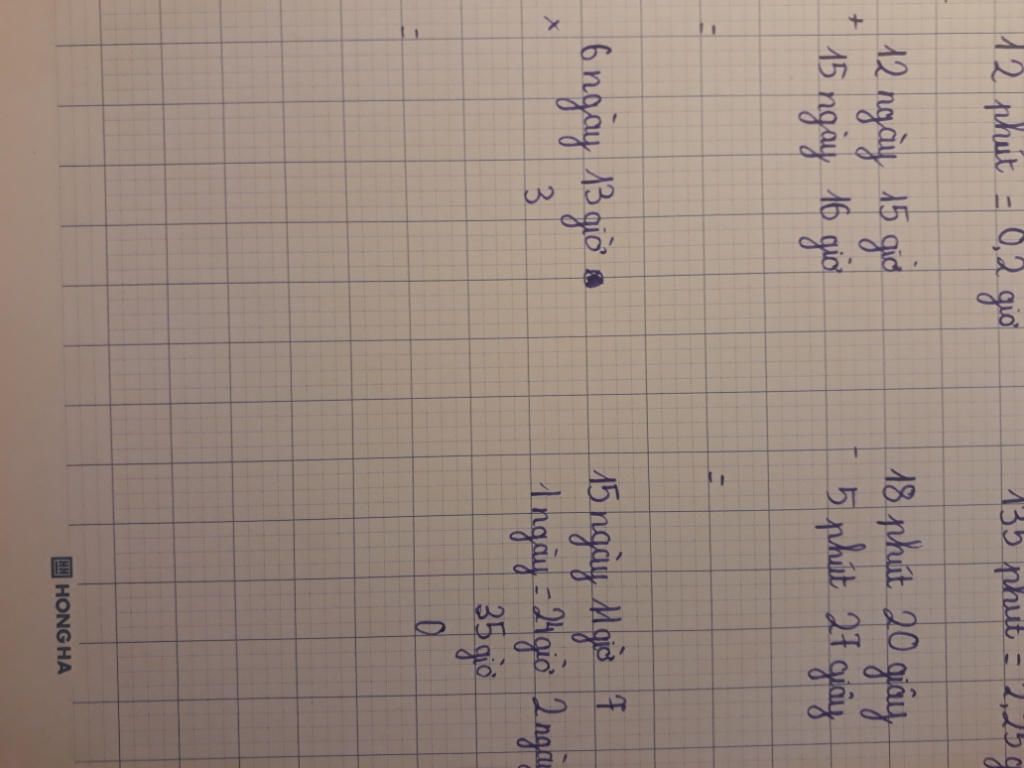 12 phút = 0,2 giờ
135 phút = 2,25 g
12 ngày 15 giờ
+
15 ngày 16 giờ
=
18 phút 20 giây
-
5 phút 27 giây
=
6 ngày 13 giờ
×
3
=
15 ngày 11 giờ 7
1 ngày = 24 giờ 2 ngày
35 giờ
0
HONG HA